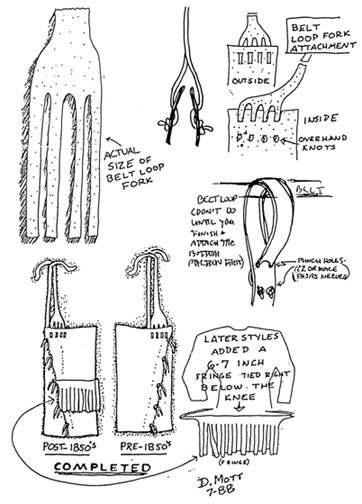 BELT
LOOP FORK
ATTACHMENT
OUTSIDE
INSIDE
OVERHAND
KNOTS
ACTUAL
SIZE OF
BELT LOOP
FORK
BELT
BELT LOOP
(DON'T DO
UNTIL YOU
FINISH &
ATTACH THE
BOTTOM
PORTION FIRST)
PUNCH HOLES-
(2 OR MORE
PAIRS NEEDED)
LATER STYLES
ADDED A
6-7 INCH
FRINGE TIED RIGHT
BELOW THE
KNEE
(FRINGE)
POST-1850'S
PRE-1850'S
COMPLETED
D. MOTT
7-88